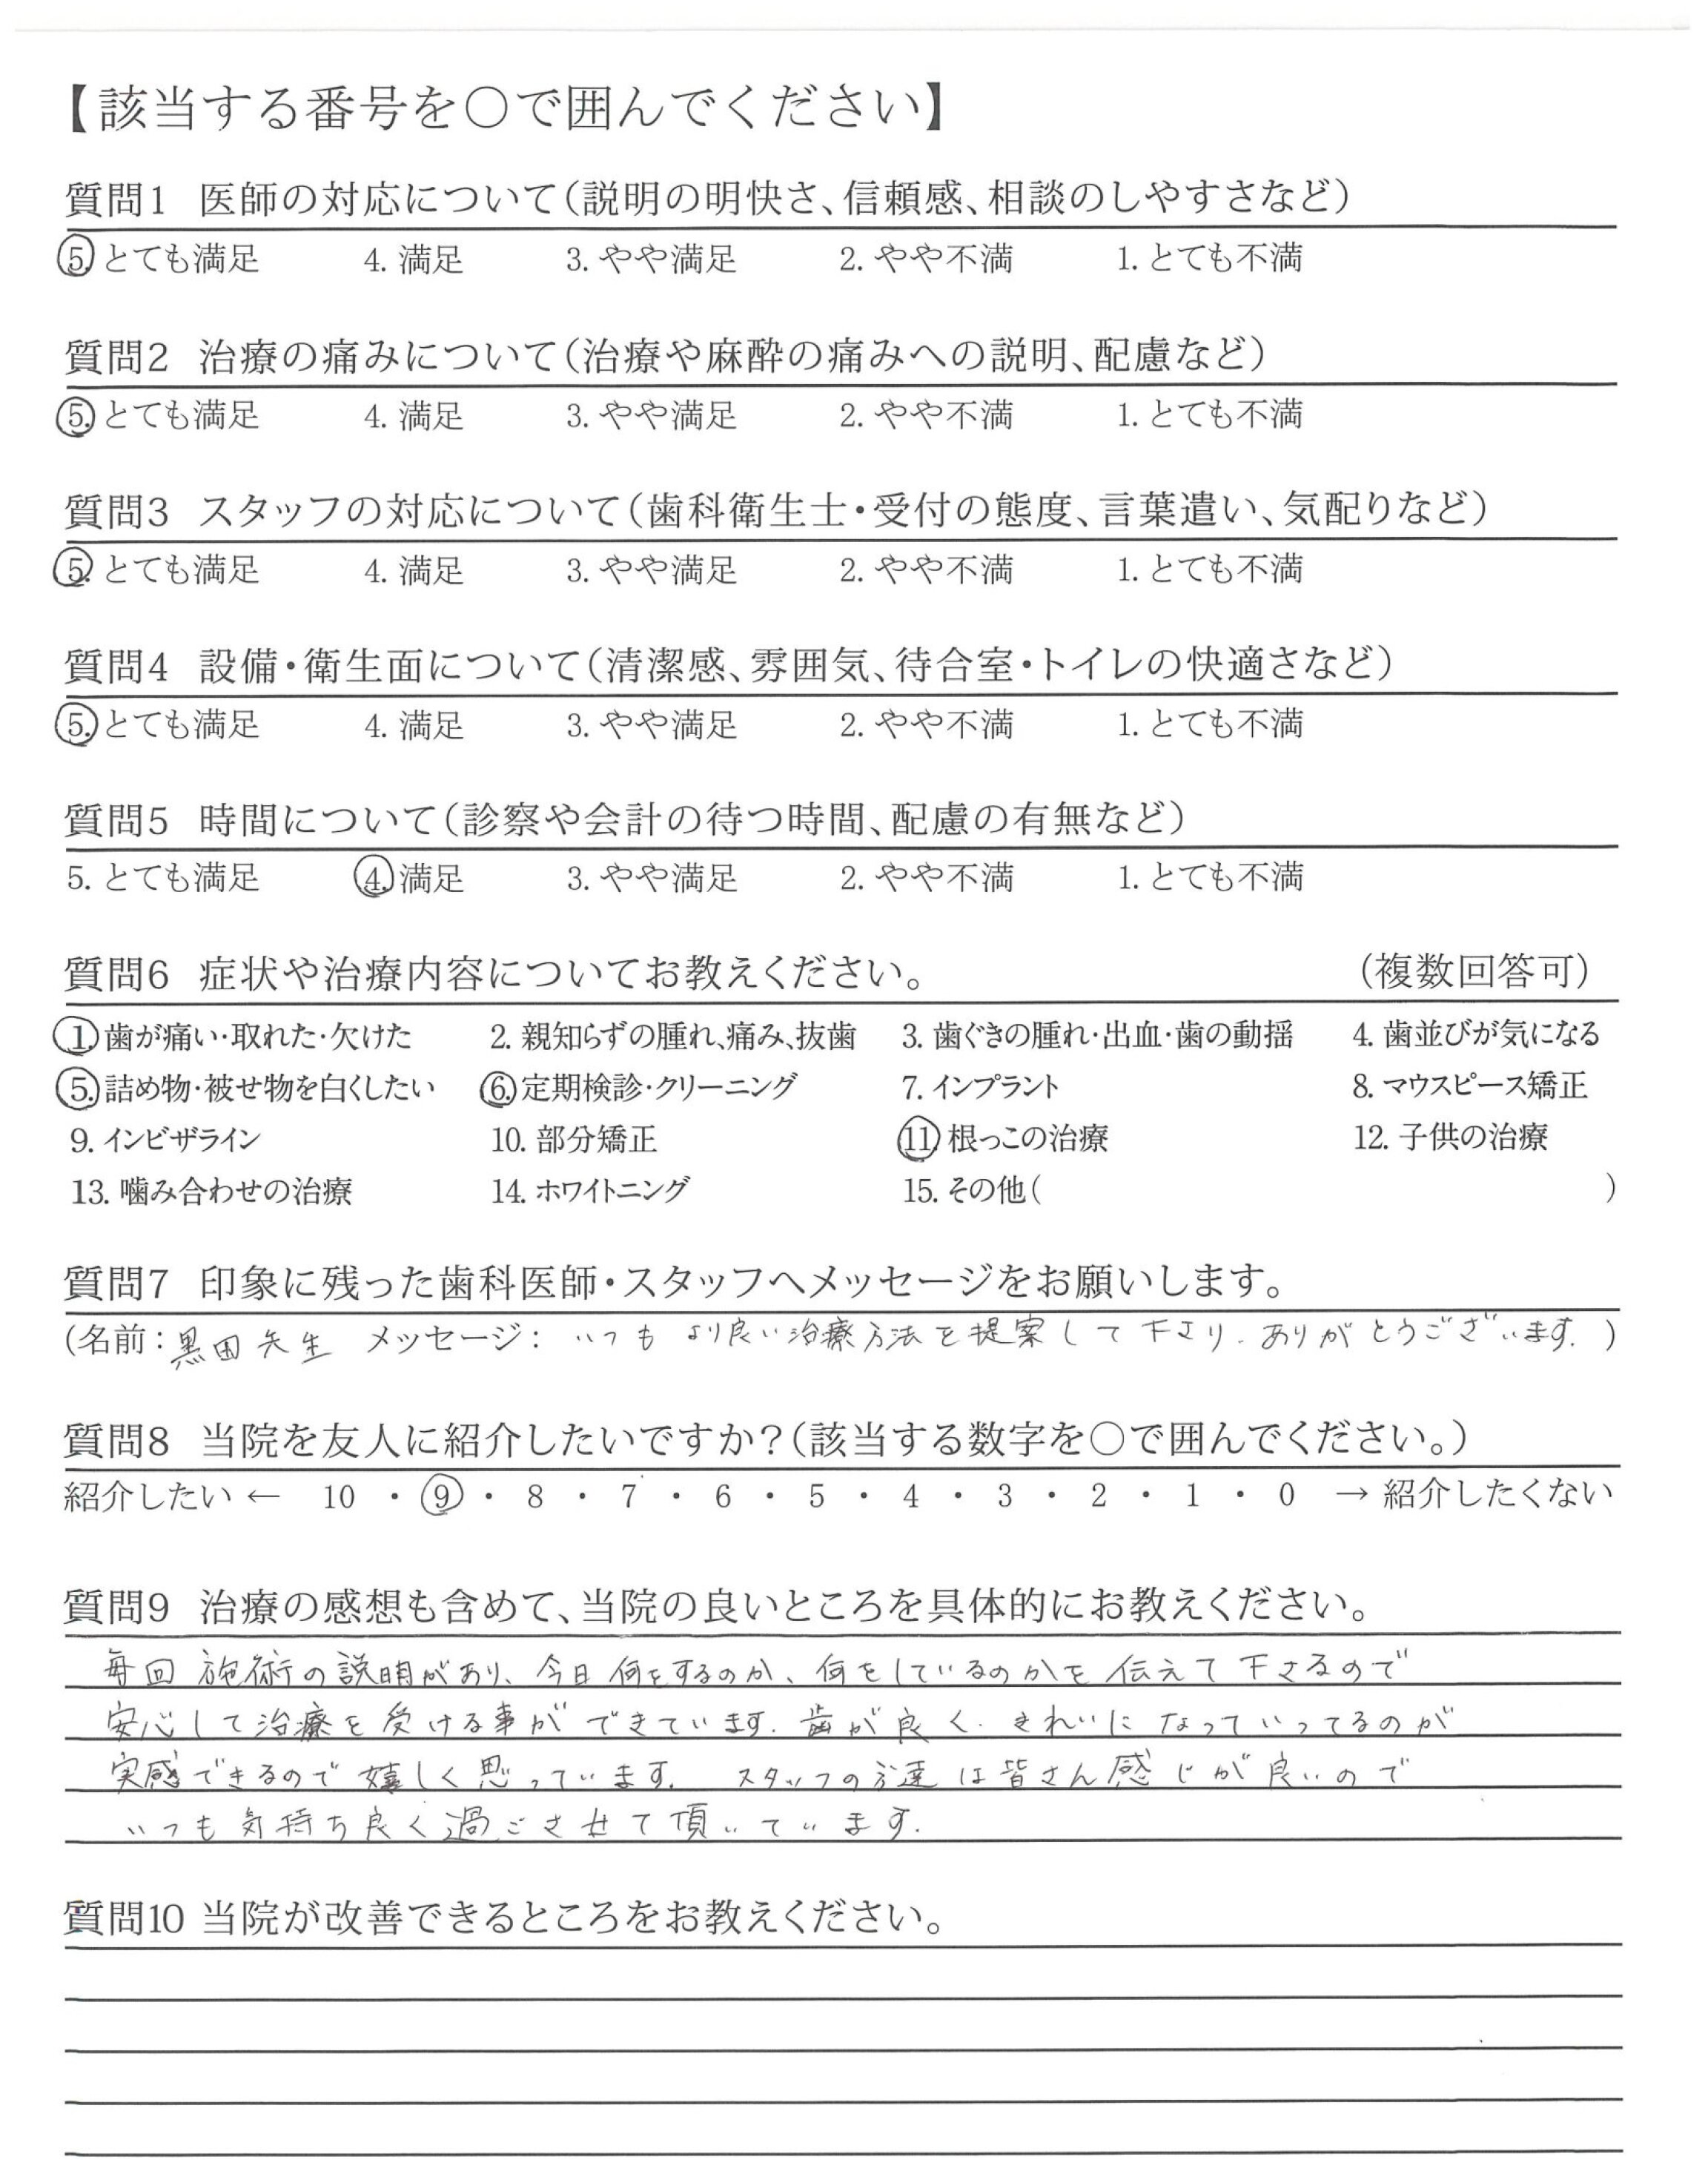 【該当する番号を○で囲んでください】
質問1 医師の対応について(説明の明快さ、信頼感、相談のしやすさなど)
5. とても満足 4. 満足 3. やや満足 2. やや不満 1. とても不満
質問2 治療の痛みについて(治療や麻酔の痛みへの説明、配慮など)
5. とても満足 4. 満足 3. やや満足 2. やや不満 1. とても不満
質問3 スタッフの対応について(歯科衛生士・受付の態度、言葉遣い、気配りなど)
5. とても満足 4. 満足 3. やや満足 2. やや不満 1. とても不満
質問4 設備・衛生面について(清潔感、雰囲気、待合室・トイレの快適さなど)
5. とても満足 4. 満足 3. やや満足 2. やや不満 1. とても不満
質問5 時間について(診察や会計の待つ時間、配慮の有無など)
5. とても満足 4. 満足 3. やや満足 2. やや不満 1. とても不満
質問6 症状や治療内容についてお教えください。 (複数回答可)
1. 歯が痛い・取れた・欠けた 2. 親知らずの腫れ、痛み、抜歯 3. 歯ぐきの腫れ・出血・歯の動揺 4. 歯並びが気になる
5. 詰め物・被せ物を白くしたい 6. 定期検診・クリーニング 7. インプラント 8. マウスピース矯正
9. インビザライン 10. 部分矯正 11. 根っこの治療 12. 子供の治療
13. 噛み合わせの治療 14. ホワイトニング 15. その他( )
質問7 印象に残った歯科医師・スタッフへメッセージをお願いします。
(名前：黒田先生 メッセージ：いつもより良い治療方法を提案して下さり、ありがとうございます。)
質問8 当院を友人に紹介したいですか?(該当する数字を○で囲んでください。)
紹介したい ← 10 ・ 9 ・ 8 ・ 7 ・ 6 ・ 5 ・ 4 ・ 3 ・ 2 ・ 1 ・ 0 → 紹介したくない
質問9 治療の感想も含めて、当院の良いところを具体的にお教えください。
毎回施術の説明があり、今日何をするのか、何をしているのかを伝えて下さるので
安心して治療を受ける事ができています。歯が良く、きれいになっていってるのが
実感できるので嬉しく思っています。 スタッフの方達は皆さん感じが良いので
いつも気持ち良く過ごさせて頂いています。
質問10 当院が改善できるところをお教えください。